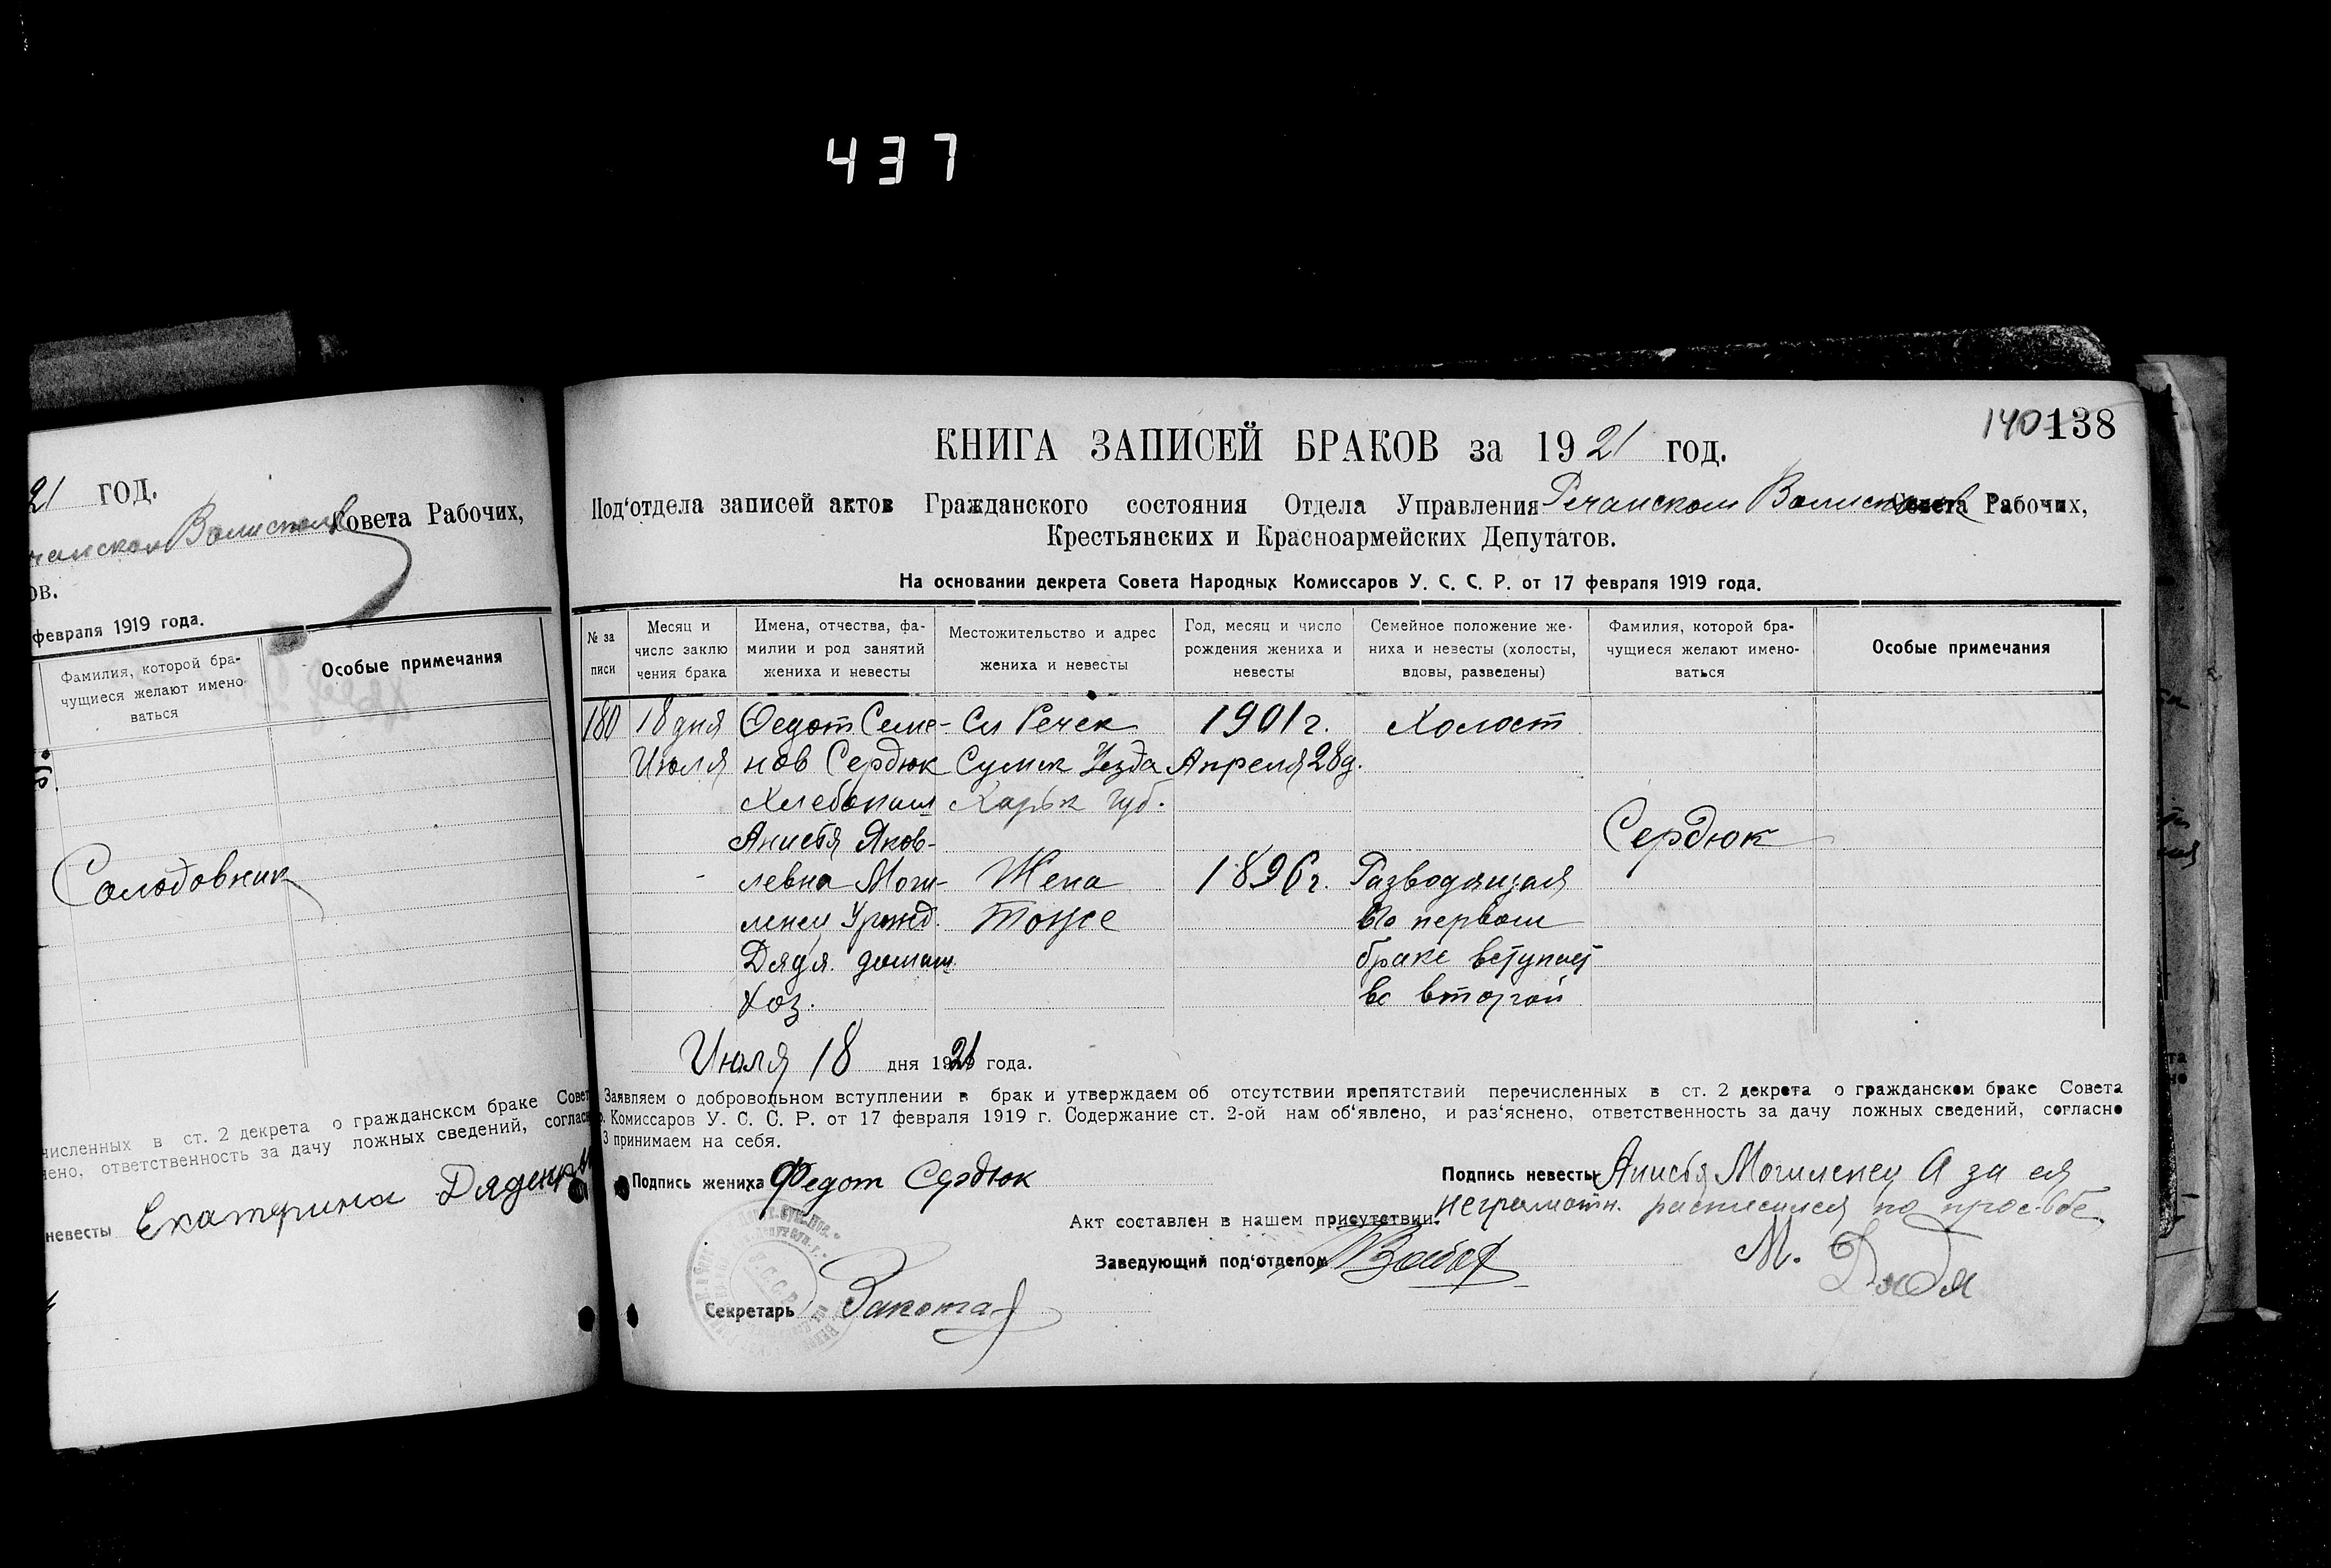 437
21 год.
Совета Рабочих,
ов.
февраля 1919 года.
Фамилия, которой бра-
чущиеся желают имено-
ваться
Особые примечания
Солодовник
численных в ст. 2 декрета о гражданском браке Совет
нено, ответственность за дачу ложных сведений, соглас
невесты Екатерина
140 138
КНИГА ЗАПИСЕЙ БРАКОВ за 1921 год.
Под‘отдела записей актов Гражданского состояния Отдела Управления Речанском Совета Рабочих,
Крестьянских и Красноармейских Депутатов.
На основании декрета Совета Народных Комиссаров У. С. С. Р. от 17 февраля 1919 года.
№ за
писи
Месяц и
число заклю
чения брака
Имена, отчества, фа-
милии и род занятий
жениха и невесты
Местожительство и адрес
жениха и невесты
Год, месяц и число
рождения жениха и
невесты
Семейное положение же-
ниха и невесты (холосты,
вдовы, разведены)
Фамилия, которой бра-
чущиеся желают имено-
ваться
Особые примечания
180 18 дня Федот Семе- Сл Речек 1901 г. Холост
Июля нов Сердюк Сумск Уезда Апреля 28 д.
Хлебопаш Харьк губ.
Анисья Яков- Сердюк
левна Моги- Жена 1896 г. Разводящая
ленец Урожд. тоже во первом
Дядя. домаш. браке вступает
хоз. во второй
Июля 18 дня 1921 года.
Заявляем о добровольном вступлении в брак и утверждаем об отсутствии препятствий перечисленных в ст. 2 декрета о гражданском браке Совета
р. Комиссаров У. С. С. Р. от 17 февраля 1919 г. Содержание ст. 2-ой нам об‘явлено, и раз‘яснено, ответственность за дачу ложных сведений, согласно
3 принимаем на себя.
Подпись жениха Федот Сердюк
Подпись невесты Анисья Могиленец А за ея
неграмотн. расписался по просьбе
Акт составлен в нашем присутствии.
М. Дядя
Заведующий под‘отделом
Секретарь Закота